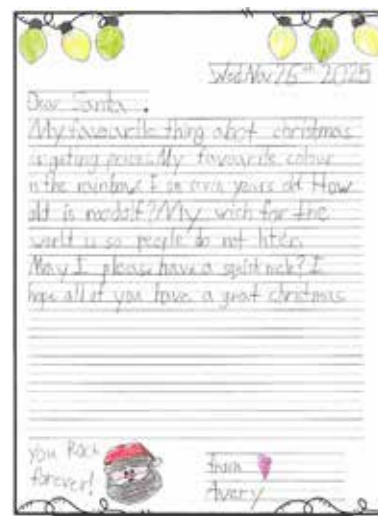 Wed Nov 26th 2025
Dear Santa.
My favourite thing abot christmas
is geting My favourite colour
is the rainbow. I am years old How
old is ? My wish for the
world is so people do not
May I please have a ? I
hope all of you have a great christmas
You Rock
forever!
from
Avery